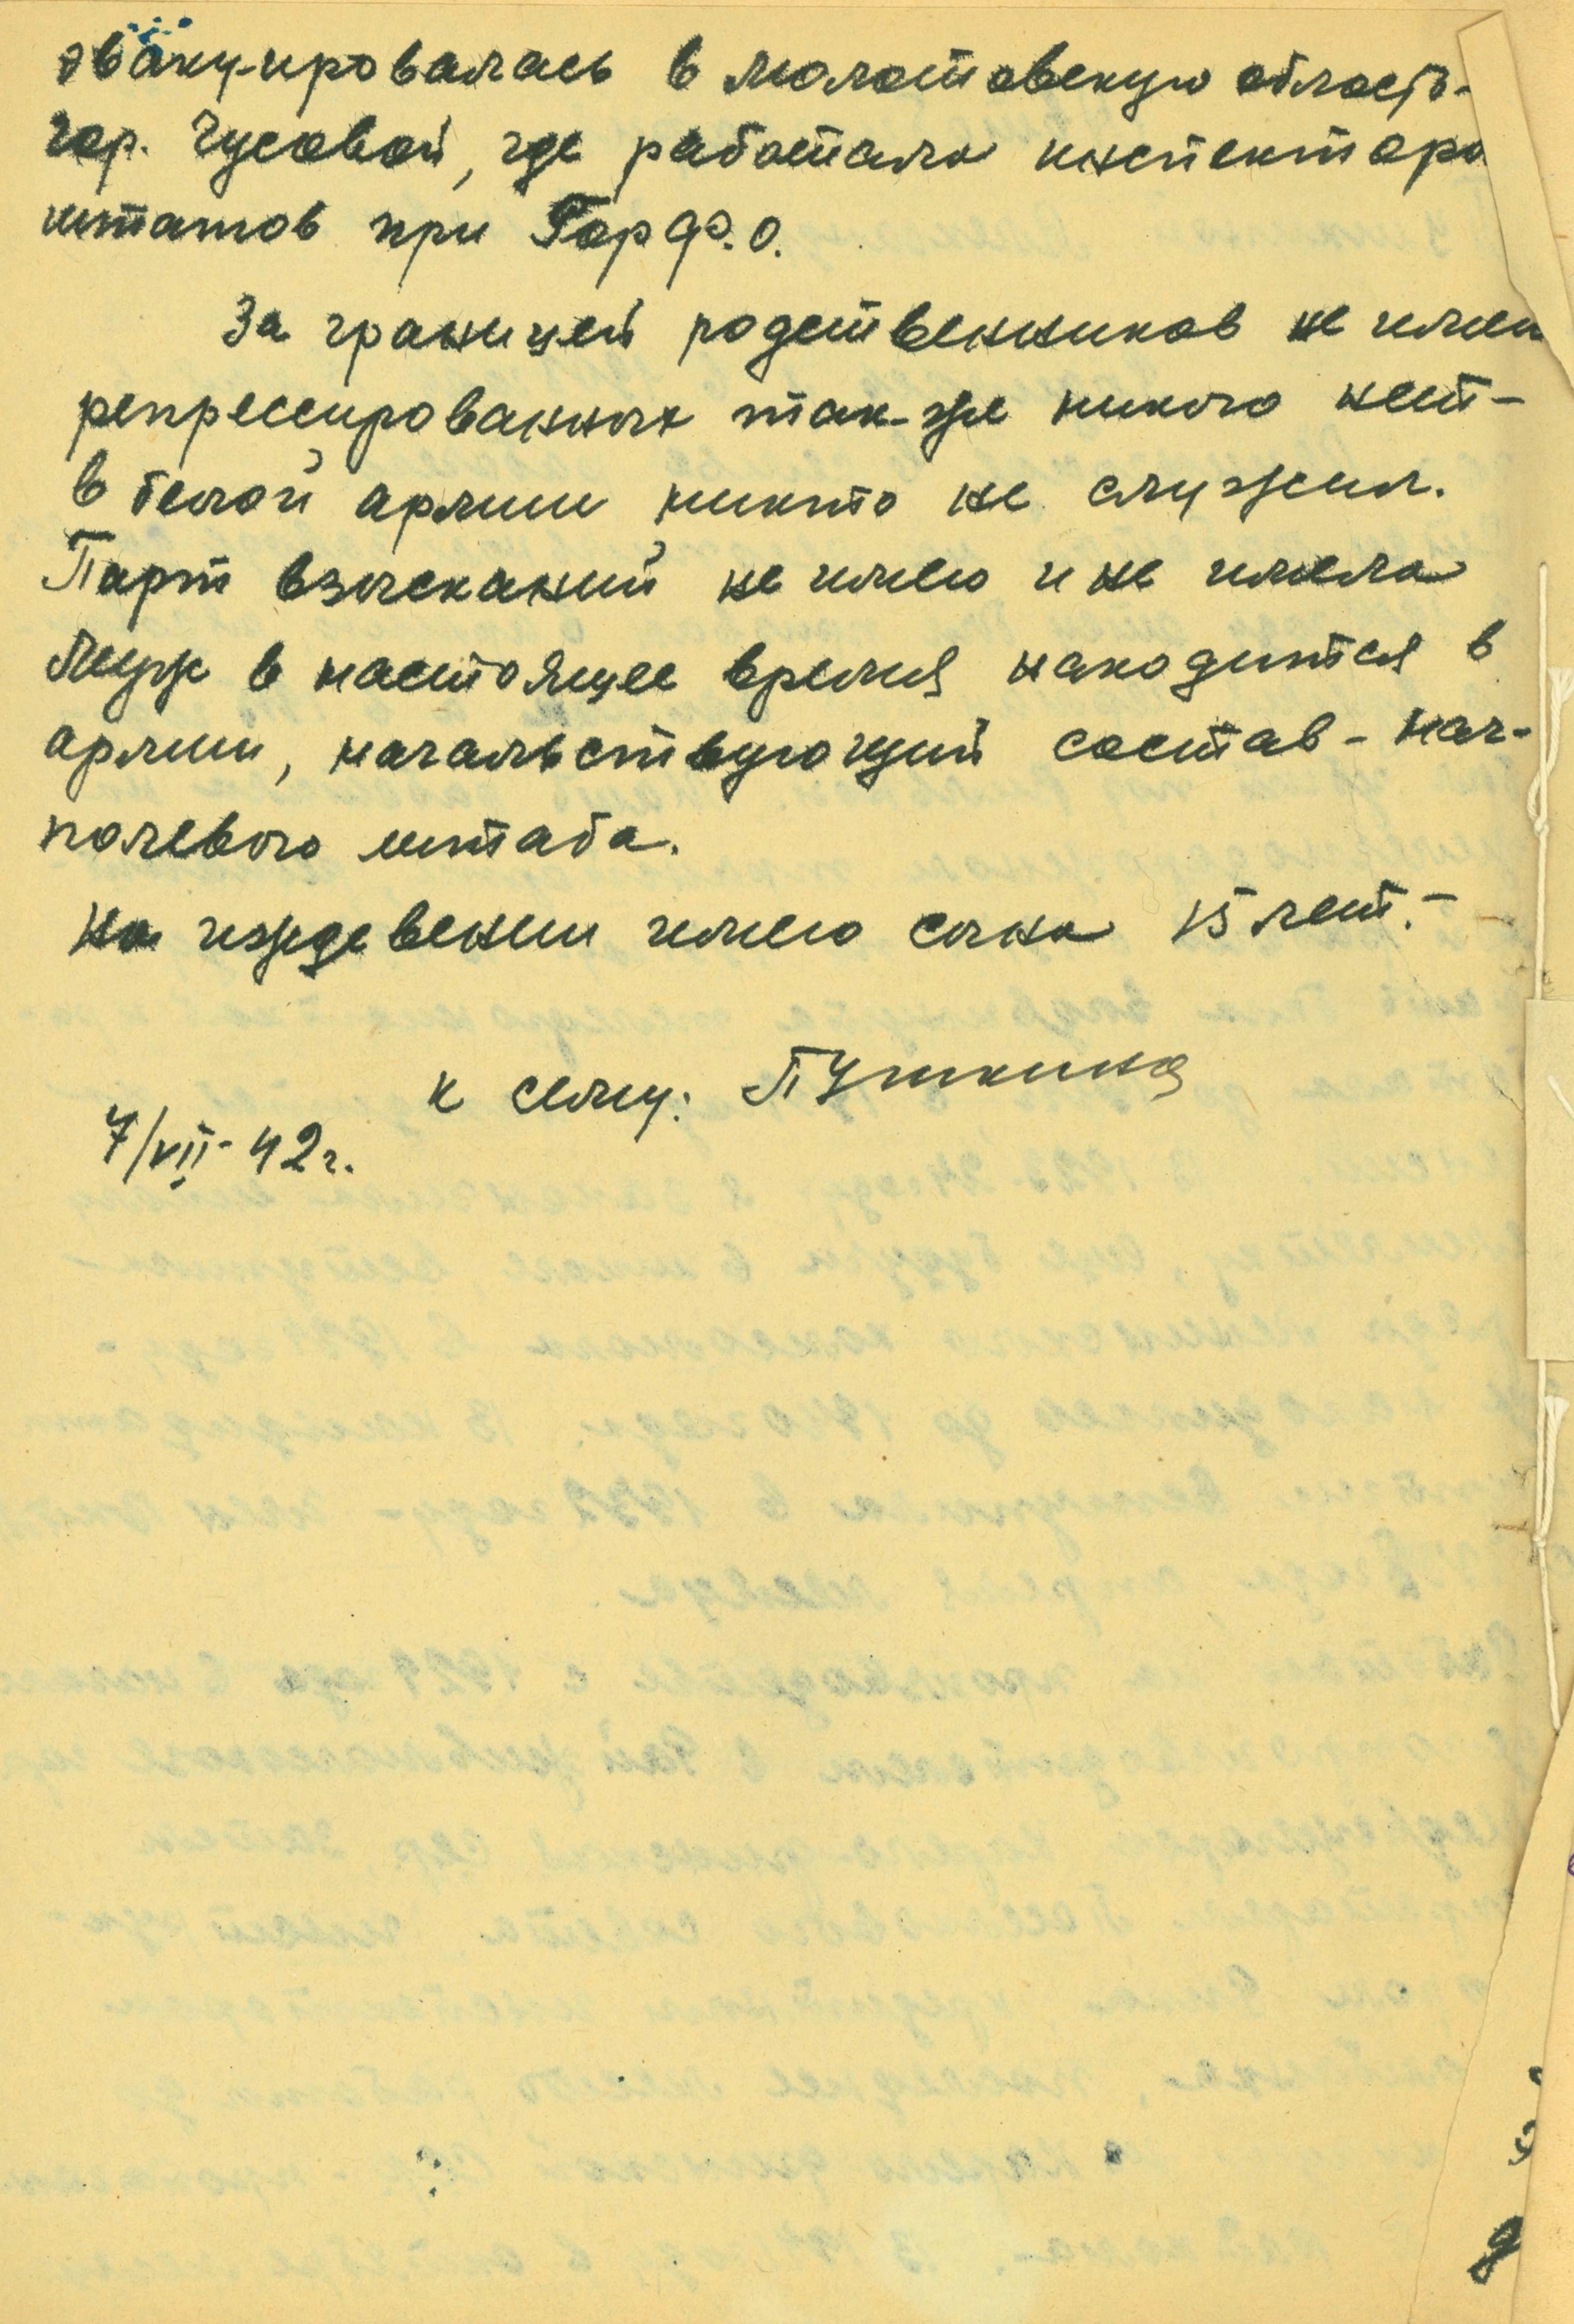 эвакуировалась в Молотовскую область-
гор. Чусовой, где работала инспектора
штатов при ГорФ.О.
За границей родственников не имею
репрессированных так-же никого нет-
в белой армии никто не служил.
Парт взысканий не имею и не имела
Муж в настоящее время находится в
армии, начальствующий состав - нач-
полевого штаба.
На иждевении имею сына 15 лет.-
к сему: Пушкина
7/VII-42 г.